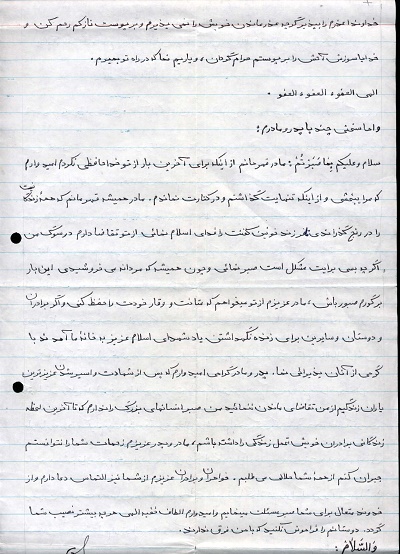 خداوندا عجزم را بپذیر گرچه عذر ماندن خویش را نمی پذیرم و بر پوست نازکم رحم کن و
خدایا سوزش آتش را بر پوستم حرام گردان، و یاریم نما که در راه تو بمیرم.
الهی العفو، العفو، العفو.
و اما سخنی چند با پدر و مادرم:
سلام و علیکم بِما صَبَرْتُم: مادر قهرمانم از اینکه برای آخرین بار از تو خداحافظی نکردم امیدوارم
که مرا ببخشی و از اینکه تنهایت گذاشتم و در کنارت نماندم. مادر همیشه قهرمانم که همه زندگانیت
را در رنج گذراندی فرزند خونین کفنت را فدای اسلام نمائی از تو تقاضا دارم در سوگ من
اگر چه بسی برایت مشکل است صبر نمائی و چون همیشه که مردانه می خروشیدی این بار
برگورم صبور باش، مادر عزیزم از تو میخواهم که متانت و وقار خودت را حفظ کنی و اگر برادران
و دوستان و سایرین برای زنده نگهداشتن یاد شهدای اسلام عزیز به خانه ما آمدند با
گرمی از آنان پذیرائی نما. پدر و مادر گرامی امیدوارم که پس از شهادت و اسیر شدن عزیزترین
یاران زندگیم از من تقاضای ماندن ننمائید من صبر انسانهای بزرگ را ندارم که تا آخرین لحظه
زندگانی برادران خویش تحمل زندگی را داشته باشم، مادر و پدر عزیزم زحمات شما را نتوانستم
جبران کنم از همه شما حلالی می طلبم. خواهران و برادران عزیزم از شما نیز التماس دعا دارم و از
خداوند متعال برای شما صبر مسئلت مینمایم و امیدوارم الطاف خفیه الهی هر چه بیشتر نصیب شما
گردد. دوستانم را فراموش نکنید که با من فرق ندارند.
والسّلام: